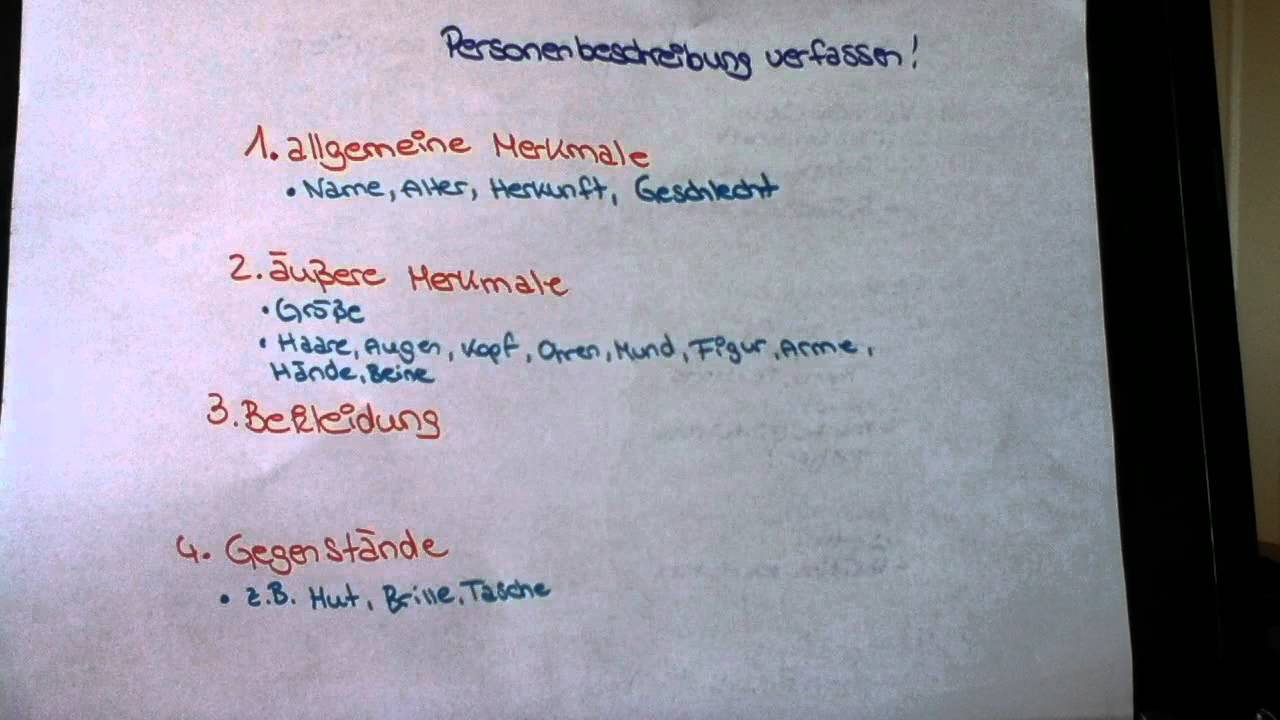 Personenbeschreibung verfassen!
1. allgemeine Merkmale
• Name, Alter, Herkunft, Geschlecht
2. äußere Merkmale
• Größe
• Haare, Augen, Kopf, Ohren, Mund, Figur, Arme,
Hände, Beine
3. Bekleidung
4. Gegenstände
• z.B. Hut, Brille, Tasche